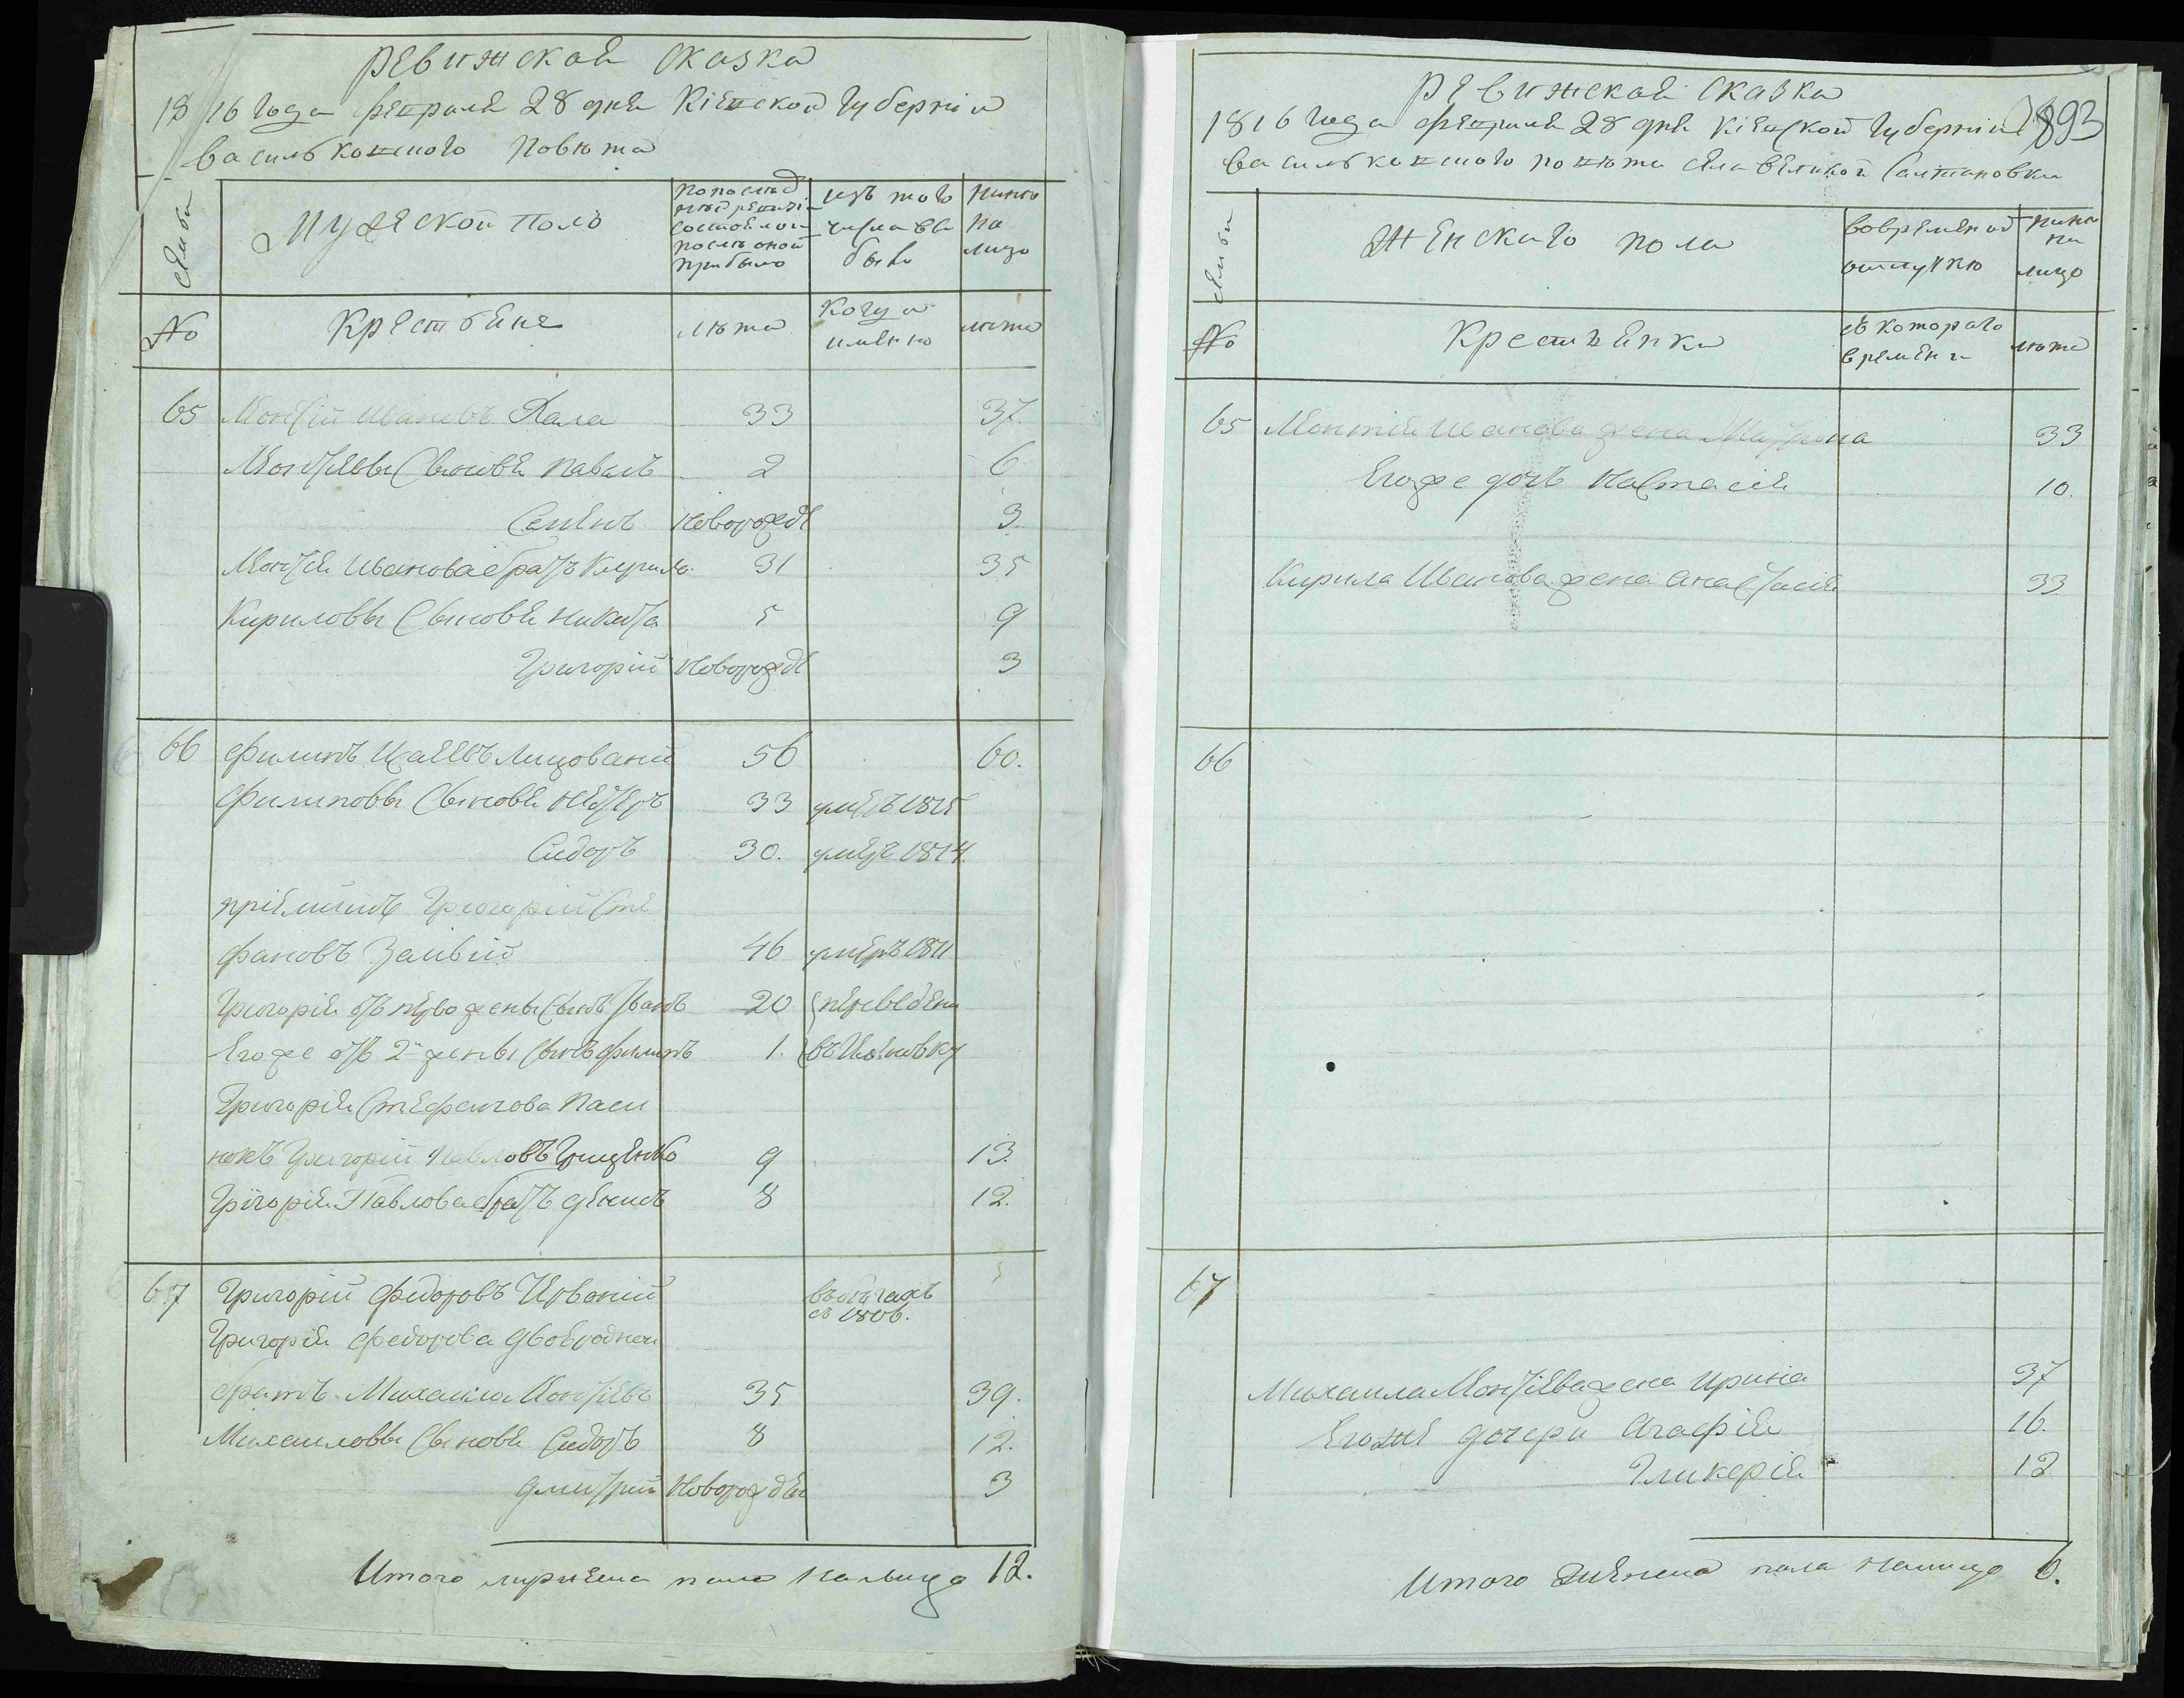 Ревижская сказка
1816 года февраля 28 дня Кіевской губерніи
Васильковского Повѣта
семьи
Мужеской полъ
по послѣд
ней ревизіи
состояло и
послѣ оной
прибыло
изъ того
числа вы
было
ныне
на
лицо
№
Крестьяне
лѣта
Когда
именно
лѣта
65 Монтій Ивановъ Хала 33 37.
Монтѣевы Сыновья Павелъ 2 6
Семенъ новорожде 3.
Монтія Иванова братъ Кирило. 31 35
Кириловы Сыновья Никита 5 9
Григорій Новорожде 3
66 Филипъ Исаевъ 56 60.
Филиповы Сыновья 33 умеръ 1815
Сидоръ 30. умеръ 1814
пріемышъ Григорій Сте
фановъ 46 умеръ 1811
Григорія отъ перво жены Сынъ Иванъ 20 переведены
Егоже отъ 2й жены Сынъ филипъ 1. въ
Григорія Стефанова Паси
нокъ Григорій Павловъ Грищенко 9 13.
Григорія Павлова братъ Денисъ 8 12.
67 Григорій Федоровъ въ бѣгахъ
съ 1806.
Григорія Федорова двоюродной
братъ Михаила Монтѣевъ 35 39.
Михаиловы Сыновья Сидоръ 8 12.
Дмитрій Новорожден 3
Итого мужеска пола на лицо 12.
Ревижская сказка
1816 года февраля 28 дня Кіевской губерніи 893
Васильковского повѣта села Великой Салтановки
семьи
Женскаго пола
во временной
отлучкѣ
ныне
на
лицо
№
Крестьянки
съ котораго
времени
лѣта
65 Монтія Иванова жена Матрона 33
Егоже дочь Настасія 10.
Кирила Иванова жена Анастасія 33
66
67
Михаила Монтѣева жена Ирина 37
Егоже дочери Агафія 16.
Гликерія 12
Итого женска пола налицо 6.